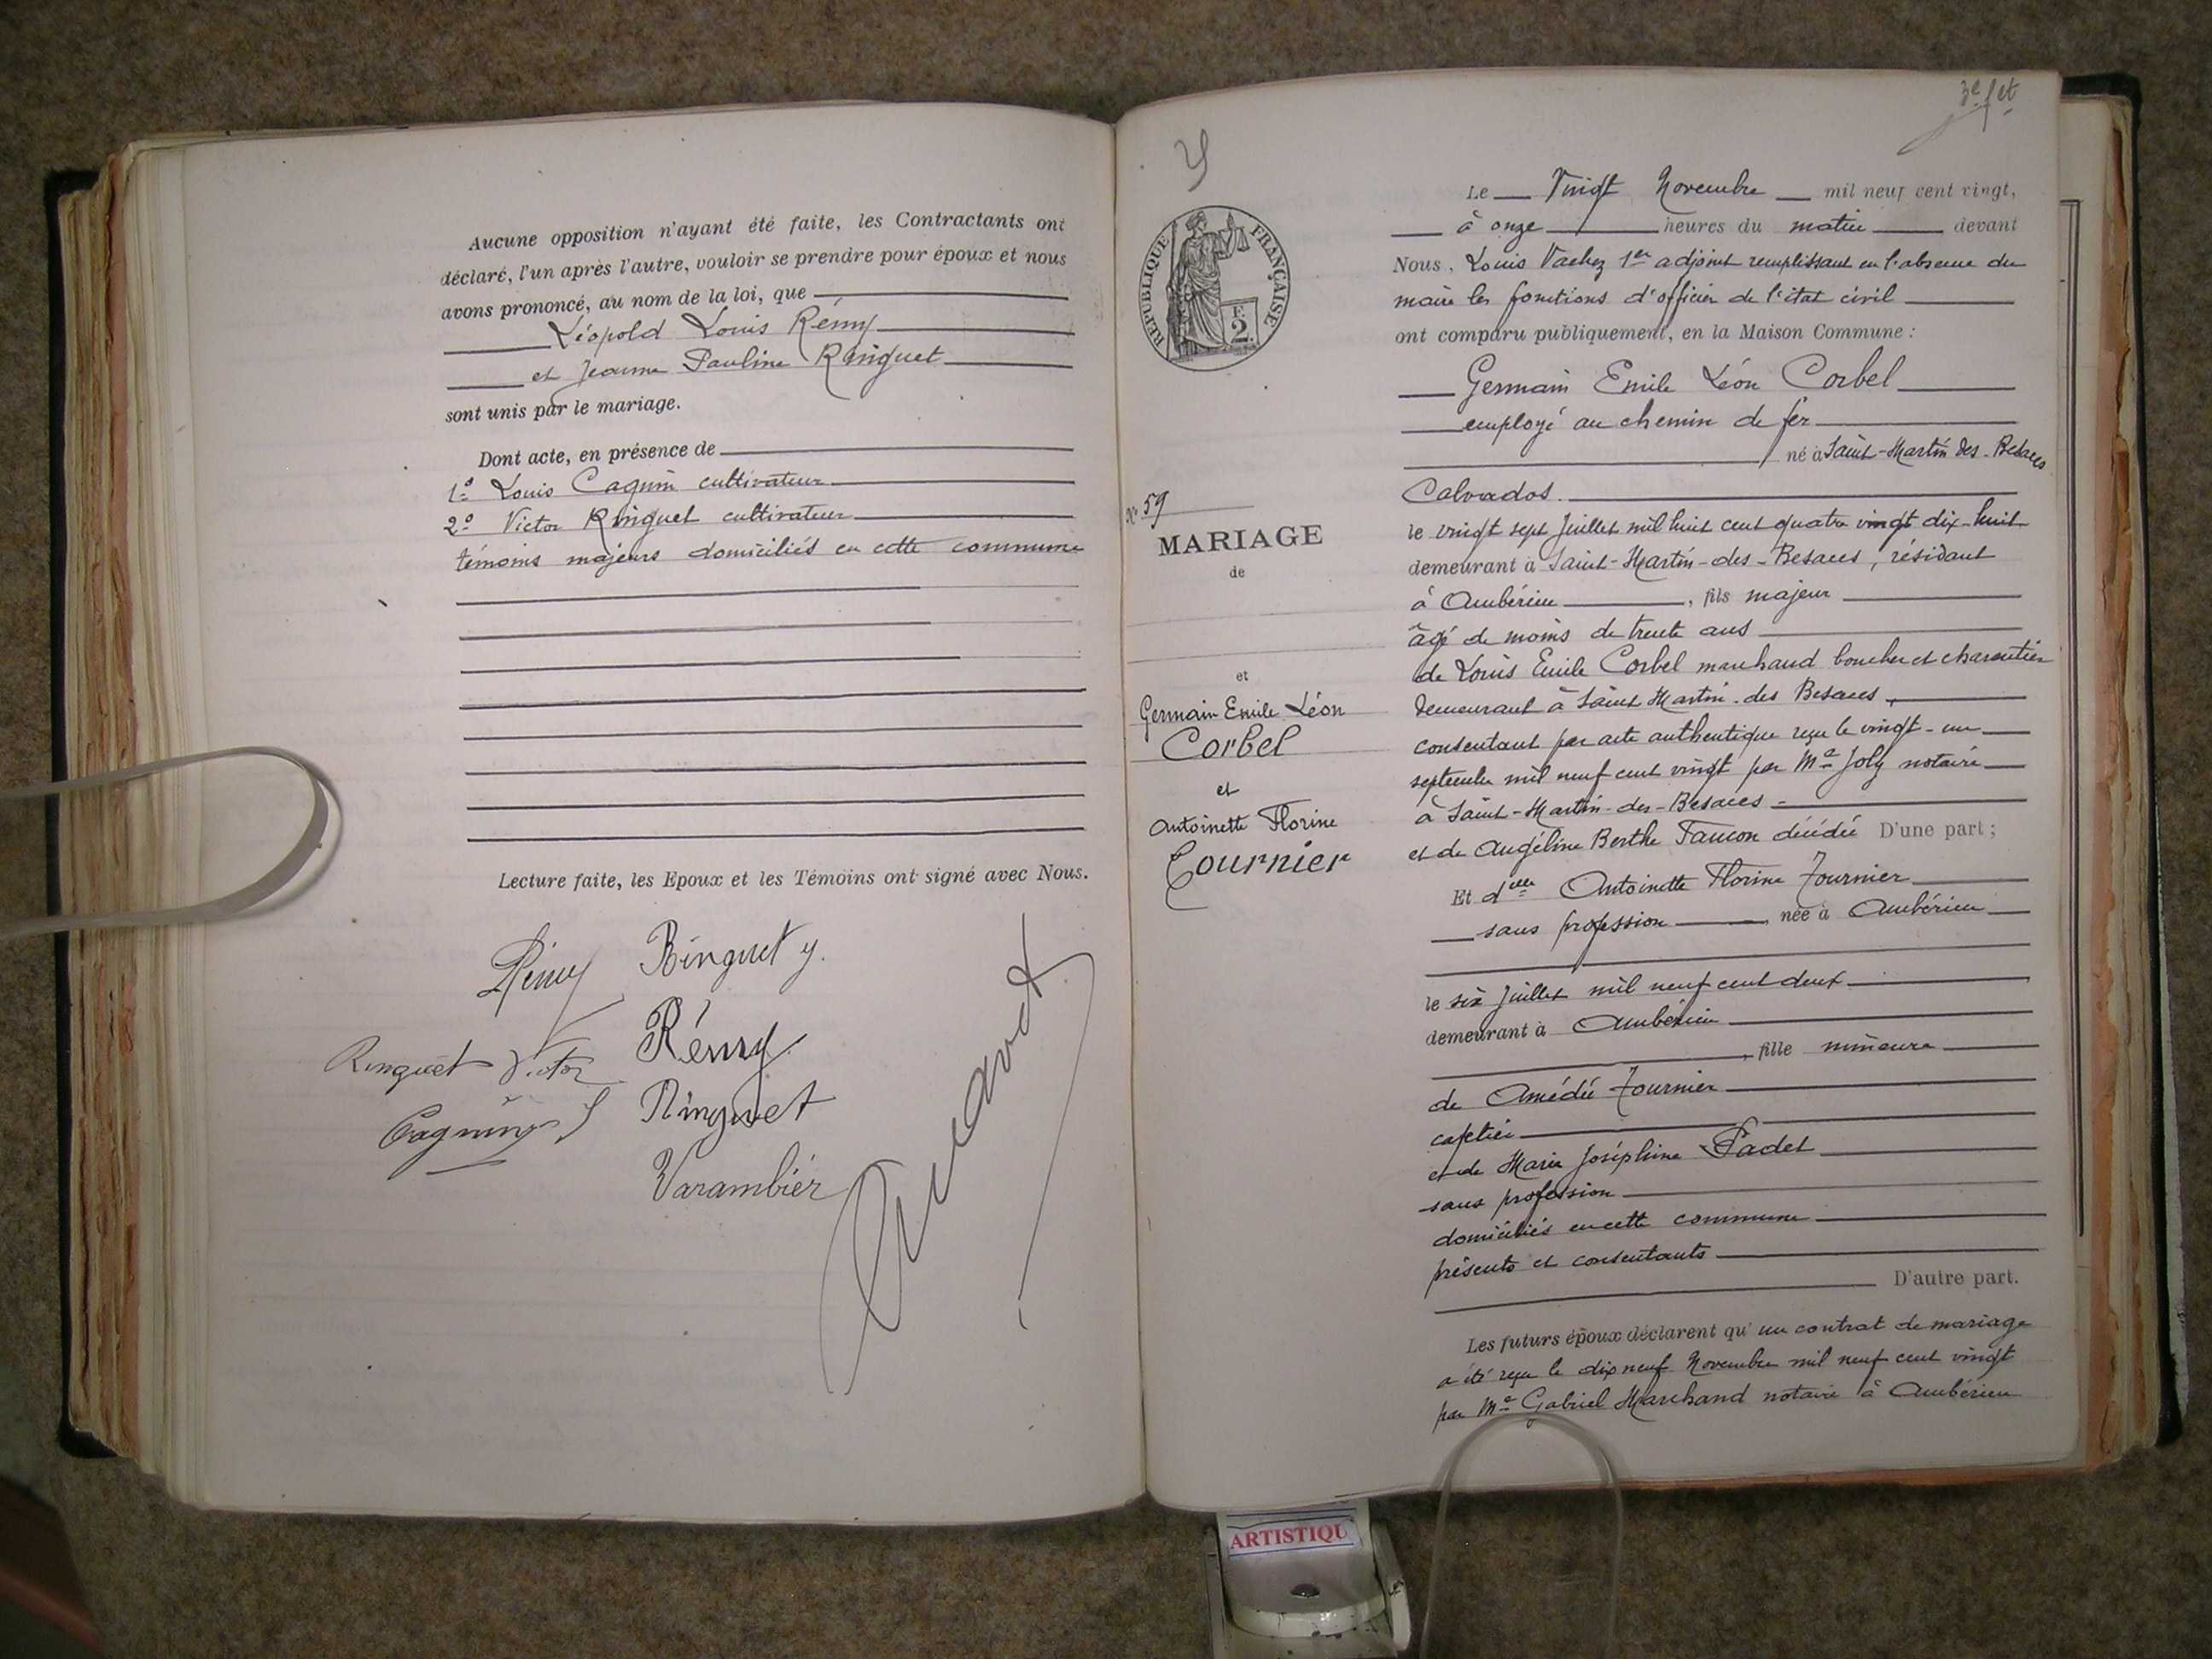 Aucune opposition n'ayant été faite, les Contractants ont
déclaré, l'un après l'autre, vouloir se prendre pour époux et nous
avons prononcé, au nom de la loi, que
Léopold Louis Rémy
et Jeanne Pauline Ringuet
sont unis par le mariage.
Dont acte, en présence de
1º Louis Cagnin cultivateur
2º Victor Ringuet cultivateur
témoins majeurs domiciliés en cette commune
Lecture faite, les Epoux et les Témoins ont signé avec Nous.
Rémy
Ringuet y.
Ringuet Victor
Rémy
Cagnin
Ringuet
Varambier
3e fet
REPUBLIQUE FRANÇAISE
F.
2.
Nº 59
MARIAGE
de
et
Germain Emile Léon
Corbel
et
Antoinette Florine
Fournier
Le Vingt Novembre mil neuf cent vingt,
à onze heures du matin devant
Nous, Louis Vachez 1er adjoint remplissant en l'absence du
maire les fonctions d'officier de l'état civil
ont comparu publiquement, en la Maison Commune :
Germain Emile Léon Corbel
employé au chemin de fer
né à Saint-Martin des-Besaces
Calvados.
le vingt sept Juillet mil huit cent quatre vingt dix-huit
demeurant à Saint-Martin-des-Besaces, résidant
à Ambérieu, fils majeur
âgé de moins de trente ans
de Louis Emile Corbel marchand boucher et charcutier
demeurant à Saint Martin-des Besaces,
consentant par acte authentique reçu le vingt-un
septembre mil neuf cent vingt par Me Joly notaire
à Saint-Martin-des-Besaces-
et de Angéline Berthe Faucon décédée D'une part;
Et dlle Antoinette Florine Fournier
sans profession, née à Ambérieu
le six Juillet mil neuf cent deux
demeurant à Ambérieu
, fille mineure
de Amédée Fournier
cafetier
et de Marie Joséphine Padet
sans profession
domiciliés en cette commune
présents et consentants
D'autre part.
Les futurs époux déclarent qu'un contrat de mariage
a été reçu le dix neuf Novembre mil neuf cent vingt
par Me Gabriel Marchand notaire à Ambérieu
ARTISTIQU